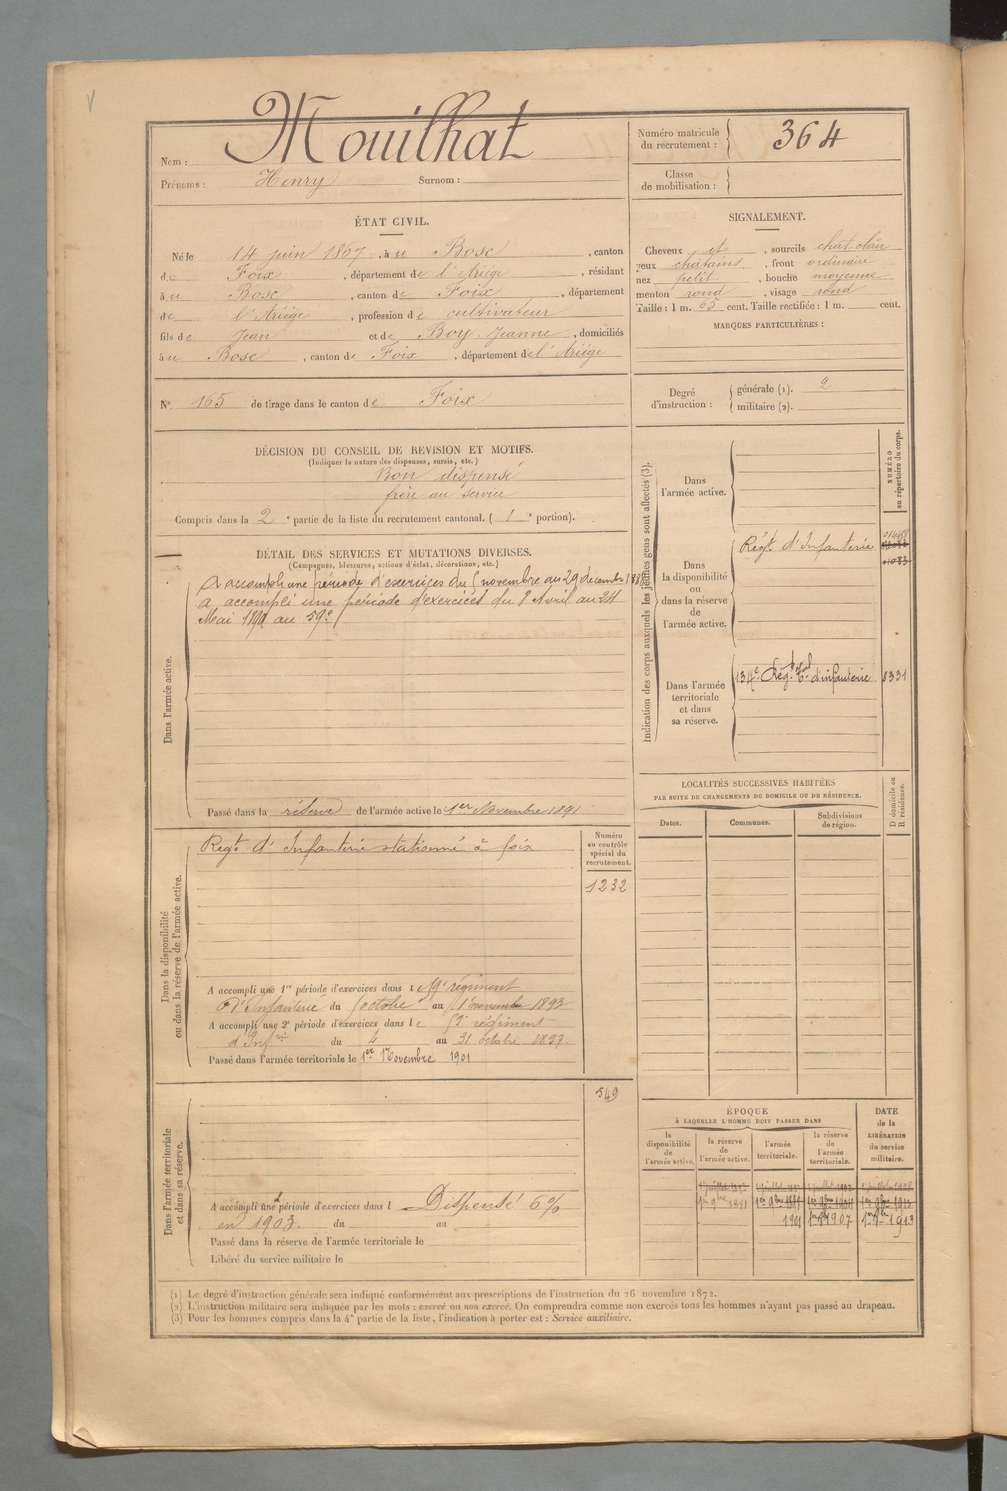 Nom : Mouilhat
Prénoms : Henry Surnom :
Numéro matricule du recrutement : 364
Classe de mobilisation :
ÉTAT CIVIL.
Né le 14 juin 1867, à u Bosc, canton
de Foix, département de l'Ariège, résidant
à u Bosc, canton de Foix, département
de l'Ariège, profession de cultivateur
fils de Jean et de Boy Jeanne, domiciliés
à u Bosc, canton de Foix, département de l'Ariége
SIGNALEMENT.
Cheveux et, sourcils chat clair
yeux chatains, front ordinaire
nez petit, bouche moyenne
menton rond, visage rond
Taille : 1 m. 65 cent. Taille rectifiée : 1 m. cent.
MARQUES PARTICULIÈRES :
N° 165 de tirage dans le canton de Foix
Degré d'instruction : générale (1). 2
militaire (2).
DÉCISION DU CONSEIL DE REVISION ET MOTIFS.
(Indiquer la nature des dispenses, sursis, etc.)
Bon dispensé
frère au service
Compris dans la 2e partie de la liste du recrutement cantonal. (1e portion).
DÉTAIL DES SERVICES ET MUTATIONS DIVERSES.
(Campagnes, blessures, actions d'éclat, décorations, etc.)
Dans l'armée active.
A accompli une période d'exercices du novembre au 29 decembre
a accompli une période d'exercices du 8 Avril au 24
Mai au 59e
Passé dans la réserve de l'armée active le 1er Novembre 1891
Dans la disponibilité ou dans la réserve de l'armée active.
Régt d'Infanterie stationné à foix
Numéro au contrôle spécial du recrutement.
1232
A accompli une 1re période d'exercices dans le régiment
d'Infanterie du octobre au novembre 1893
A accompli une 2e période d'exercices dans le régiment
d'Infrie du 4 au 31 octobre 1897.
Passé dans l'armée territoriale le 1er Novembre 1901
Dans l'armée territoriale et dans sa réserve.
549
A accompli une période d'exercices dans l Dispensé 6%
en 1903. du au
Passé dans la réserve de l'armée territoriale le
Libéré du service militaire le
Indication des corps auxquels les jeunes gens sont affectés (3).
NUMÉRO au répertoire du corps.
Dans l'armée active.
Dans la disponibilité ou dans la réserve de l'armée active.
Régt d'Infanterie
Dans l'armée territoriale et dans sa réserve.
134e Régt territorial d'infanterie 8331
LOCALITÉS SUCCESSIVES HABITÉES
PAR SUITE DE CHANGEMENTS DE DOMICILE OU DE RÉSIDENCE.
D domicile ou R résidence.
Dates. Communes. Subdivisions de région.
ÉPOQUE
À LAQUELLE L'HOMME DOIT PASSER DANS
DATE de la LIBÉRATION du service militaire.
la disponibilité de l'armée active. la réserve de l'armée active. l'armée territoriale. la réserve de l'armée territoriale.
1er 9bre 1891
1901 1907 1913
(1) Le degré d'instruction générale sera indiqué conformément aux prescriptions de l'instruction du 26 novembre 1872.
(2) L'instruction militaire sera indiquée par les mots : exercé ou non exercé. On comprendra comme non exercés tous les hommes n'ayant pas passé au drapeau.
(3) Pour les hommes compris dans la 4e partie de la liste, l'indication à porter est : Service auxiliaire.